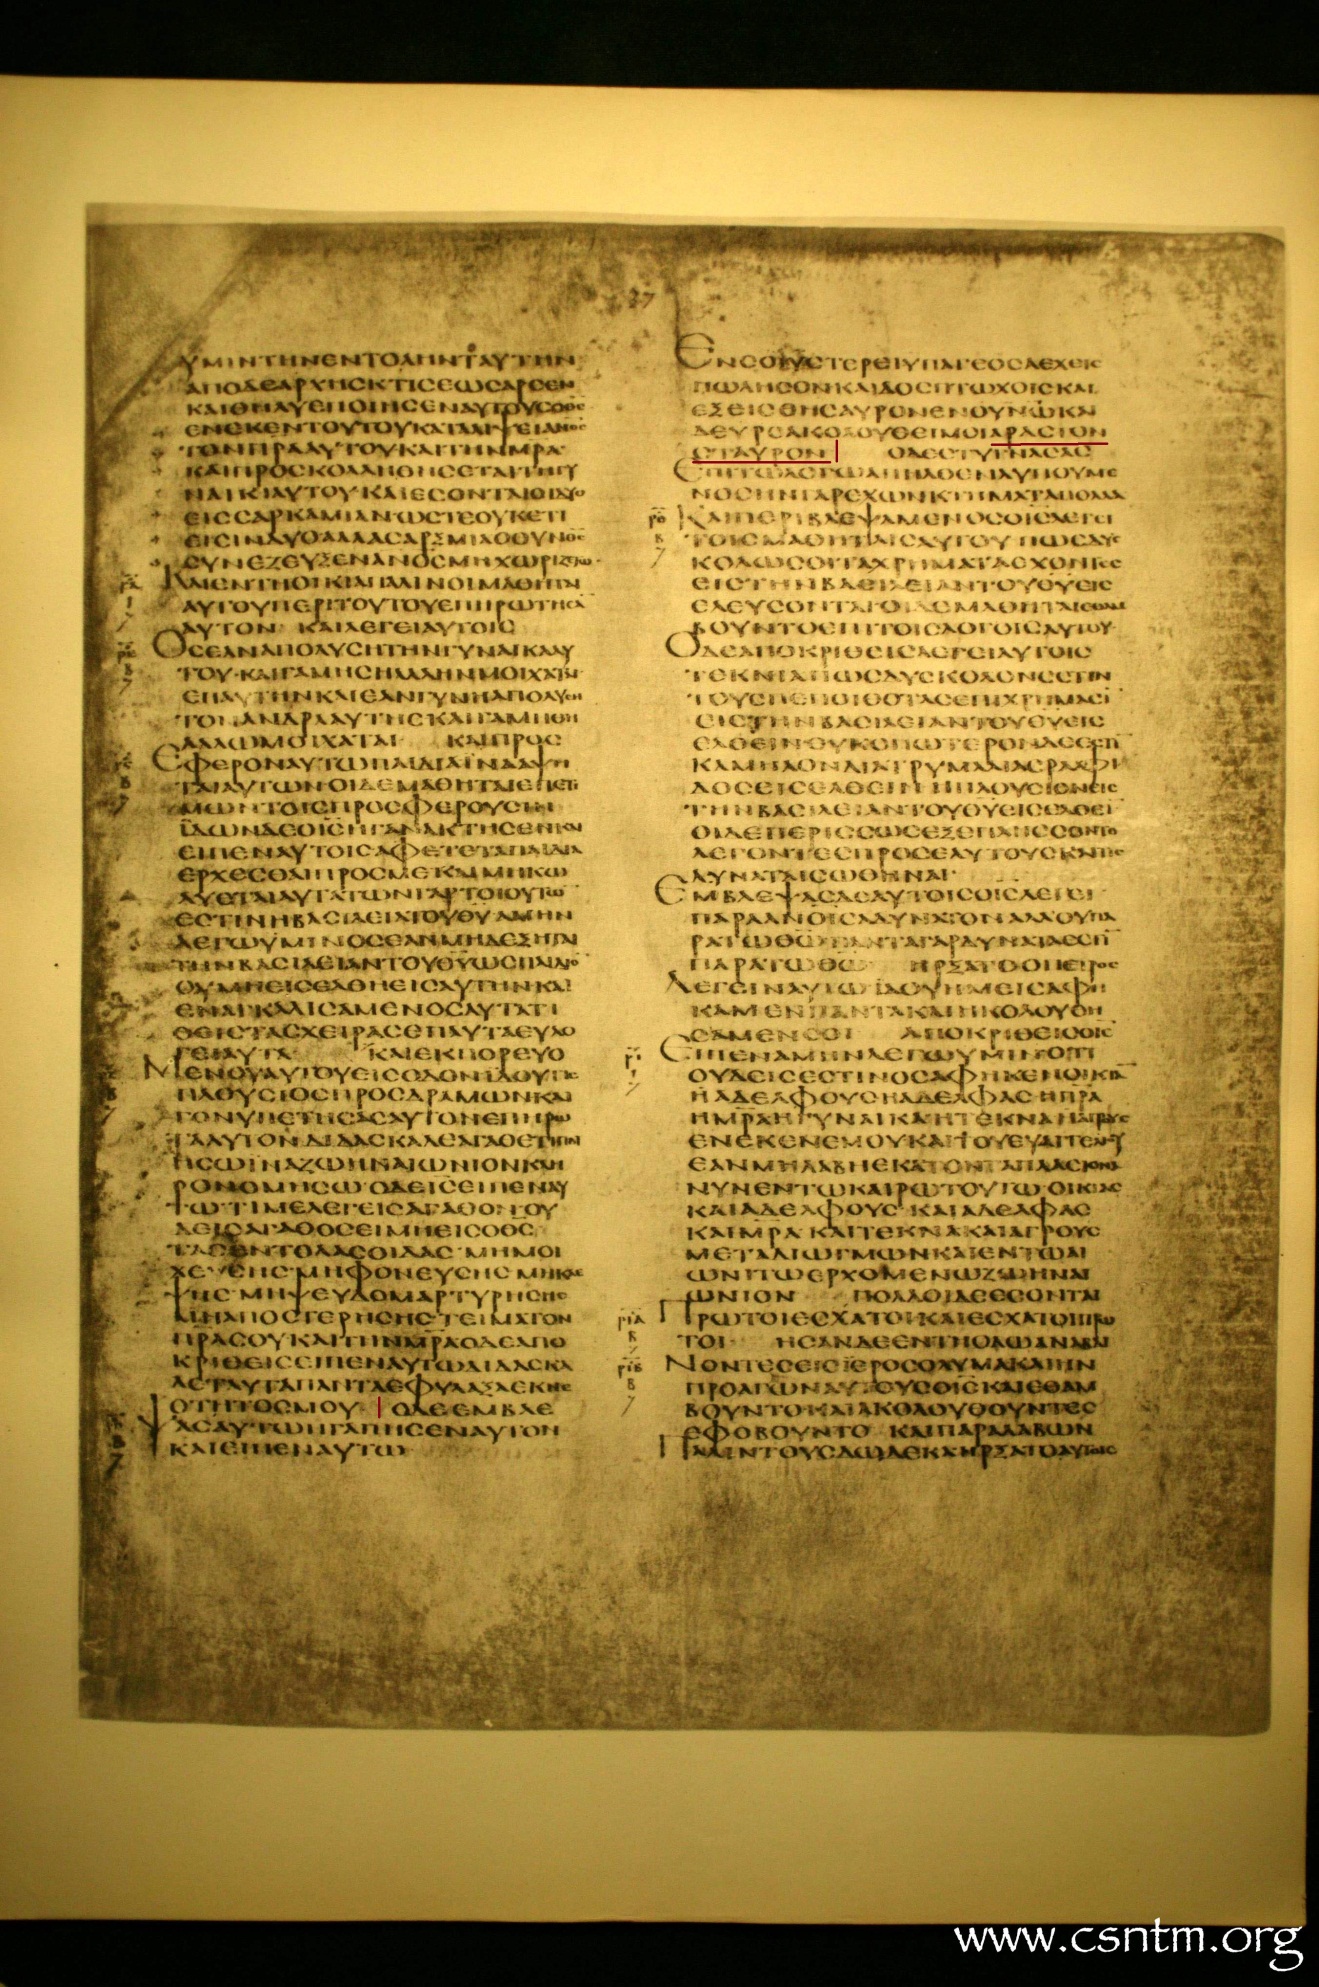 37
ΥΜΙΝΤΗΝΕΝΤΟΛΗΝΤΑΥΤΗΝ
ΑΠΟΔΕΑΡΧΗΣΚΤΙΣΕΩΣΑΡΣΕΝ
ΚΑΙΘΗΛΥΕΠΟΙΗΣΕΝΑΥΤΟΥΣΟΘΣ
ΕΝΕΚΕΝΤΟΥΤΟΥΚΑΤΑΛΙΨΕΙΑΝΟΣ
ΤΟΝΠΡΑΑΥΤΟΥΚΑΙΤΗΝΜΡΑ
ΕΙΣΣΑΡΚΑΜΙΑΝΩΣΤΕΟΥΚΕΤΙ
ΕΙΣΙΝΔΥΟΑΛΛΑΣΑΡΞΜΙΑΟΟΥΝΘΣ
ΣΥΝΕΖΕΥΞΕΝΑΝΟΣΜΗΧΩΡΙΖΕΤΩ
ΑΥΤΟΥΠΕΡΙΤΟΥΤΟΥΕΠΗΡΩΤΗΣΑ
ΑΥΤΟΝ ΚΑΙΛΕΓΕΙΑΥΤΟΙΣ
ΟΣΕΑΝΑΠΟΛΥΣΗΤΗΝΓΥΝΑΙΚΑΑΥ
ΤΟΥΚΑΙΓΑΜΗΣΗΑΛΛΗΝΜΟΙΧΑΤΑΙ
ΕΠΑΥΤΗΝΚΑΙΕΑΝΓΥΝΗΑΠΟΛΥΣΗ
ΤΟΝΑΝΔΡΑΑΥΤΗΣΚΑΙΓΑΜΗΘΗ
ΑΛΛΩΜΟΙΧΑΤΑΙ ΚΑΙΠΡΟΣ
ΕΦΕΡΟΝΑΥΤΩΠΑΙΔΙΑΙΝΑΑΨΗ
ΤΑΙΑΥΤΩΝΟΙΔΕΜΑΘΗΤΑΙΕΠΕΤΙ
ΜΩΝΤΟΙΣΠΡΟΣΦΕΡΟΥΣΙΝ
ΙΔΩΝΔΕΟΙΣΗΓΑΝΑΚΤΗΣΕΝΚΑΙ
ΕΙΠΕΝΑΥΤΟΙΣΑΦΕΤΕΤΑΠΑΙΔΙΑ
ΕΡΧΕΣΘΑΙΠΡΟΣΜΕΚΑΙΜΗΚΩ
ΛΥΕΤΑΙΑΥΤΑΤΩΝΓΑΡΤΟΙΟΥΤΩ
ΕΣΤΙΝΗΒΑΣΙΛΕΙΑΤΟΥΘΥΑΜΗΝ
ΛΕΓΩΥΜΙΝΟΣΕΑΝΜΗΔΕΞΗΤΑΙ
ΤΗΝΒΑΣΙΛΕΙΑΝΤΟΥΘΥΩΣΠΑΙΔΙΟ
ΟΥΜΗΕΙΣΕΛΘΗΕΙΣΑΥΤΗΝΚΑΙ
ΕΝΑΓΚΑΛΙΣΑΜΕΝΟΣΑΥΤΑΤΙ
ΘΕΙΣΤΑΣΧΕΙΡΑΣΕΠΑΥΤΑΕΥΛΟ
ΓΕΙΑΥΤΑ ΚΑΙΕΚΠΟΡΕΥΟ
ΜΕΝΟΥΑΥΤΟΥΕΙΣΟΔΟΝΙΔΟΥΤΙΣ
ΠΛΟΥΣΙΟΣΠΡΟΣΔΡΑΜΩΝΚΑΙ
ΓΟΝΥΠΕΤΗΣΑΣΑΥΤΟΝΕΠΗΡΩ
ΤΑΑΥΤΟΝΔΙΔΑΣΚΑΛΕΑΓΑΘΕΤΙΠΟΙ
ΗΣΩΙΝΑΖΩΗΝΑΙΩΝΙΟΝΚΛΗ
ΡΟΝΟΜΗΣΩ ΟΔΕΙΣΕΙΠΕΝΑΥ
ΤΩΤΙΜΕΛΕΓΕΙΣΑΓΑΘΟΝΟΥ
ΔΕΙΣΑΓΑΘΟΣΕΙΜΗΕΙΣΟΘΣ
ΤΑΣΕΝΤΟΛΑΣΟΙΔΑΣ ΜΗΜΟΙ
ΧΕΥΣΗΣ ΜΗΦΟΝΕΥΣΗΣ ΜΗΚΛΕ
ΨΗΣ ΜΗΨΕΥΔΟΜΑΡΤΥΡΗΣΗΣ
ΜΗΑΠΟΣΤΕΡΗΣΗΣΤΕΙΜΑΤΟΝ
ΠΡΑΣΟΥΚΑΙΤΗΝΜΡΑΟΔΕΑΠΟ
ΚΡΙΘΕΙΣΕΙΠΕΝΑΥΤΩΔΙΔΑΣΚΑ
ΛΕΤΑΥΤΑΠΑΝΤΑΕΦΥΛΑΞΑΕΚΝΕ
ΟΤΗΤΟΣΜΟΥ ΟΔΕΕΜΒΛΕ
ΨΑΣΑΥΤΩΗΓΑΠΗΣΕΝΑΥΤΟΝ
ΚΑΙΕΙΠΕΝΑΥΤΩ
ΕΝΣΟΙΥΣΤΕΡΕΙΥΠΑΓΕΟΣΑΕΧΕΙΣ
ΠΩΛΗΣΟΝΚΑΙΔΟΣΠΤΩΧΟΙΣΚΑΙ
ΕΞΕΙΣΘΗΣΑΥΡΟΝΕΝΟΥΝΩΚΑΙ
ΔΕΥΡΟΑΚΟΛΟΥΘΕΙΜΟΙΑΡΑΣΤΟΝ
ΣΤΑΥΡΟΝ ΟΔΕΣΤΥΓΝΑΣΑΣ
ΕΠΙΤΩΛΟΓΩΑΠΗΛΘΕΝΛΥΠΟΥΜΕ
ΝΟΣΗΝΓΑΡΕΧΩΝΚΤΗΜΑΤΑΠΟΛΛΑ
ΚΑΙΠΕΡΙΒΛΕΨΑΜΕΝΟΣΟΙΣΛΕΓΕΙ
ΤΟΙΣΜΑΘΗΤΑΙΣΑΥΤΟΥΠΩΣΔΥΣ
ΚΟΛΩΣΟΙΤΑΧΡΗΜΑΤΑΕΧΟΝΤΕΣ
ΕΙΣΤΗΝΒΑΣΙΛΕΙΑΝΤΟΥΘΥΕΙΣ
ΕΛΕΥΣΟΝΤΑΙΟΙΔΕΜΑΘΗΤΑΙΕΘΑΜ
ΒΟΥΝΤΟΕΠΙΤΟΙΣΛΟΓΟΙΣΑΥΤΟΥ
ΟΔΕΑΠΟΚΡΙΘΕΙΣΛΕΓΕΙΑΥΤΟΙΣ
ΤΕΚΝΙΑΠΩΣΔΥΣΚΟΛΟΝΕΣΤΙΝ
ΤΟΥΣΠΕΠΟΙΘΟΤΑΣΕΠΙΧΡΗΜΑΣΙ
ΕΙΣΤΗΝΒΑΣΙΛΕΙΑΝΤΟΥΘΥΕΙΣ
ΕΛΘΕΙΝΕΥΚΟΠΩΤΕΡΟΝΔΕΕΣΤΙ
ΚΑΜΗΛΟΝΔΙΑΤΡΥΜΑΛΙΑΣΡΑΦΙ
ΔΟΣΕΙΣΕΛΘΕΙΝΗΠΛΟΥΣΙΟΝΕΙΣ
ΤΗΝΒΑΣΙΛΕΙΑΝΤΟΥΘΥΕΙΣΕΛΘΕΙ
ΟΙΔΕΠΕΡΙΣΣΩΣΕΞΕΠΛΗΣΣΟΝΤΟ
ΛΕΓΟΝΤΕΣΠΡΟΣΕΑΥΤΟΥΣΚΑΙΤΙΣ
ΔΥΝΑΤΑΙΣΩΘΗΝΑΙ
ΕΜΒΛΕΨΑΣΔΕΑΥΤΟΙΣΟΙΣΛΕΓΕΙ
ΠΑΡΑΑΝΟΙΣΑΔΥΝΑΤΟΝΑΛΛΟΥΠΑ
ΡΑΤΩΘΩΠΑΝΤΑΓΑΡΔΥΝΑΤΑΕΣΤΙ
ΠΑΡΑΤΩΘΩ ΗΡΞΑΤΟΟΠΕΤΡΟΣ
ΛΕΓΕΙΝΑΥΤΩΙΔΟΥΗΜΕΙΣΑΦΗ
ΚΑΜΕΝΠΑΝΤΑΚΑΙΗΚΟΛΟΥΘΗ
ΣΑΜΕΝΣΟΙ ΑΠΟΚΡΙΘΕΙΣΟΙΣ
ΕΙΠΕΝΑΜΗΝΛΕΓΩΥΜΙΝΟΤΙ
ΟΥΔΕΙΣΕΣΤΙΝΟΣΑΦΗΚΕΝΟΙΚΙΑ
ΗΑΔΕΛΦΟΥΣΗΑΔΕΛΦΑΣΗΠΡΑ
ΗΜΡΑΗΓΥΝΑΙΚΑΗΤΕΚΝΑΗΑΓΡΟΥΣ
ΕΝΕΚΕΝΕΜΟΥΚΑΙΤΟΥΕΥΑΓΓΕΛΙΟΥ
ΕΑΝΜΗΛΑΒΗΕΚΑΤΟΝΤΑΠΛΑΣΙΟΝΑ
ΝΥΝΕΝΤΩΚΑΙΡΩΤΟΥΤΩΟΙΚΙΑΣ
ΚΑΙΑΔΕΛΦΟΥΣ ΚΑΙΑΔΕΛΦΑΣ
ΚΑΙΜΡΑ ΚΑΙΤΕΚΝΑ ΚΑΙΑΓΡΟΥΣ
ΜΕΤΑΔΙΩΓΜΩΝΚΑΙΕΝΤΩΑΙ
ΩΝΙΤΩΕΡΧΟΜΕΝΩΖΩΗΝΑΙ
ΩΝΙΟΝ ΠΟΛΛΟΙΔΕΕΣΟΝΤΑΙ
ΠΡΩΤΟΙΕΣΧΑΤΟΙΚΑΙΕΣΧΑΤΟΙΠΡΩ
ΤΟΙ ΗΣΑΝΔΕΕΝΤΗΟΔΩΑΝΑΒΑΙ
ΝΟΝΤΕΣΕΙΣΙΕΡΟΣΟΛΥΜΑΚΑΙΗΝ
ΠΡΟΑΓΩΝΑΥΤΟΥΣΟΙΣΚΑΙΕΘΑΜ
ΒΟΥΝΤΟΚΑΙΑΚΟΛΟΥΘΟΥΝΤΕΣ
ΕΦΟΒΟΥΝΤΟ ΚΑΙΠΑΡΑΛΑΒΩΝ
ΠΑΛΙΝΤΟΥΣΔΩΔΕΚΑΗΡΞΑΤΟΑΥΤΟΙΣ
www.csntm.org